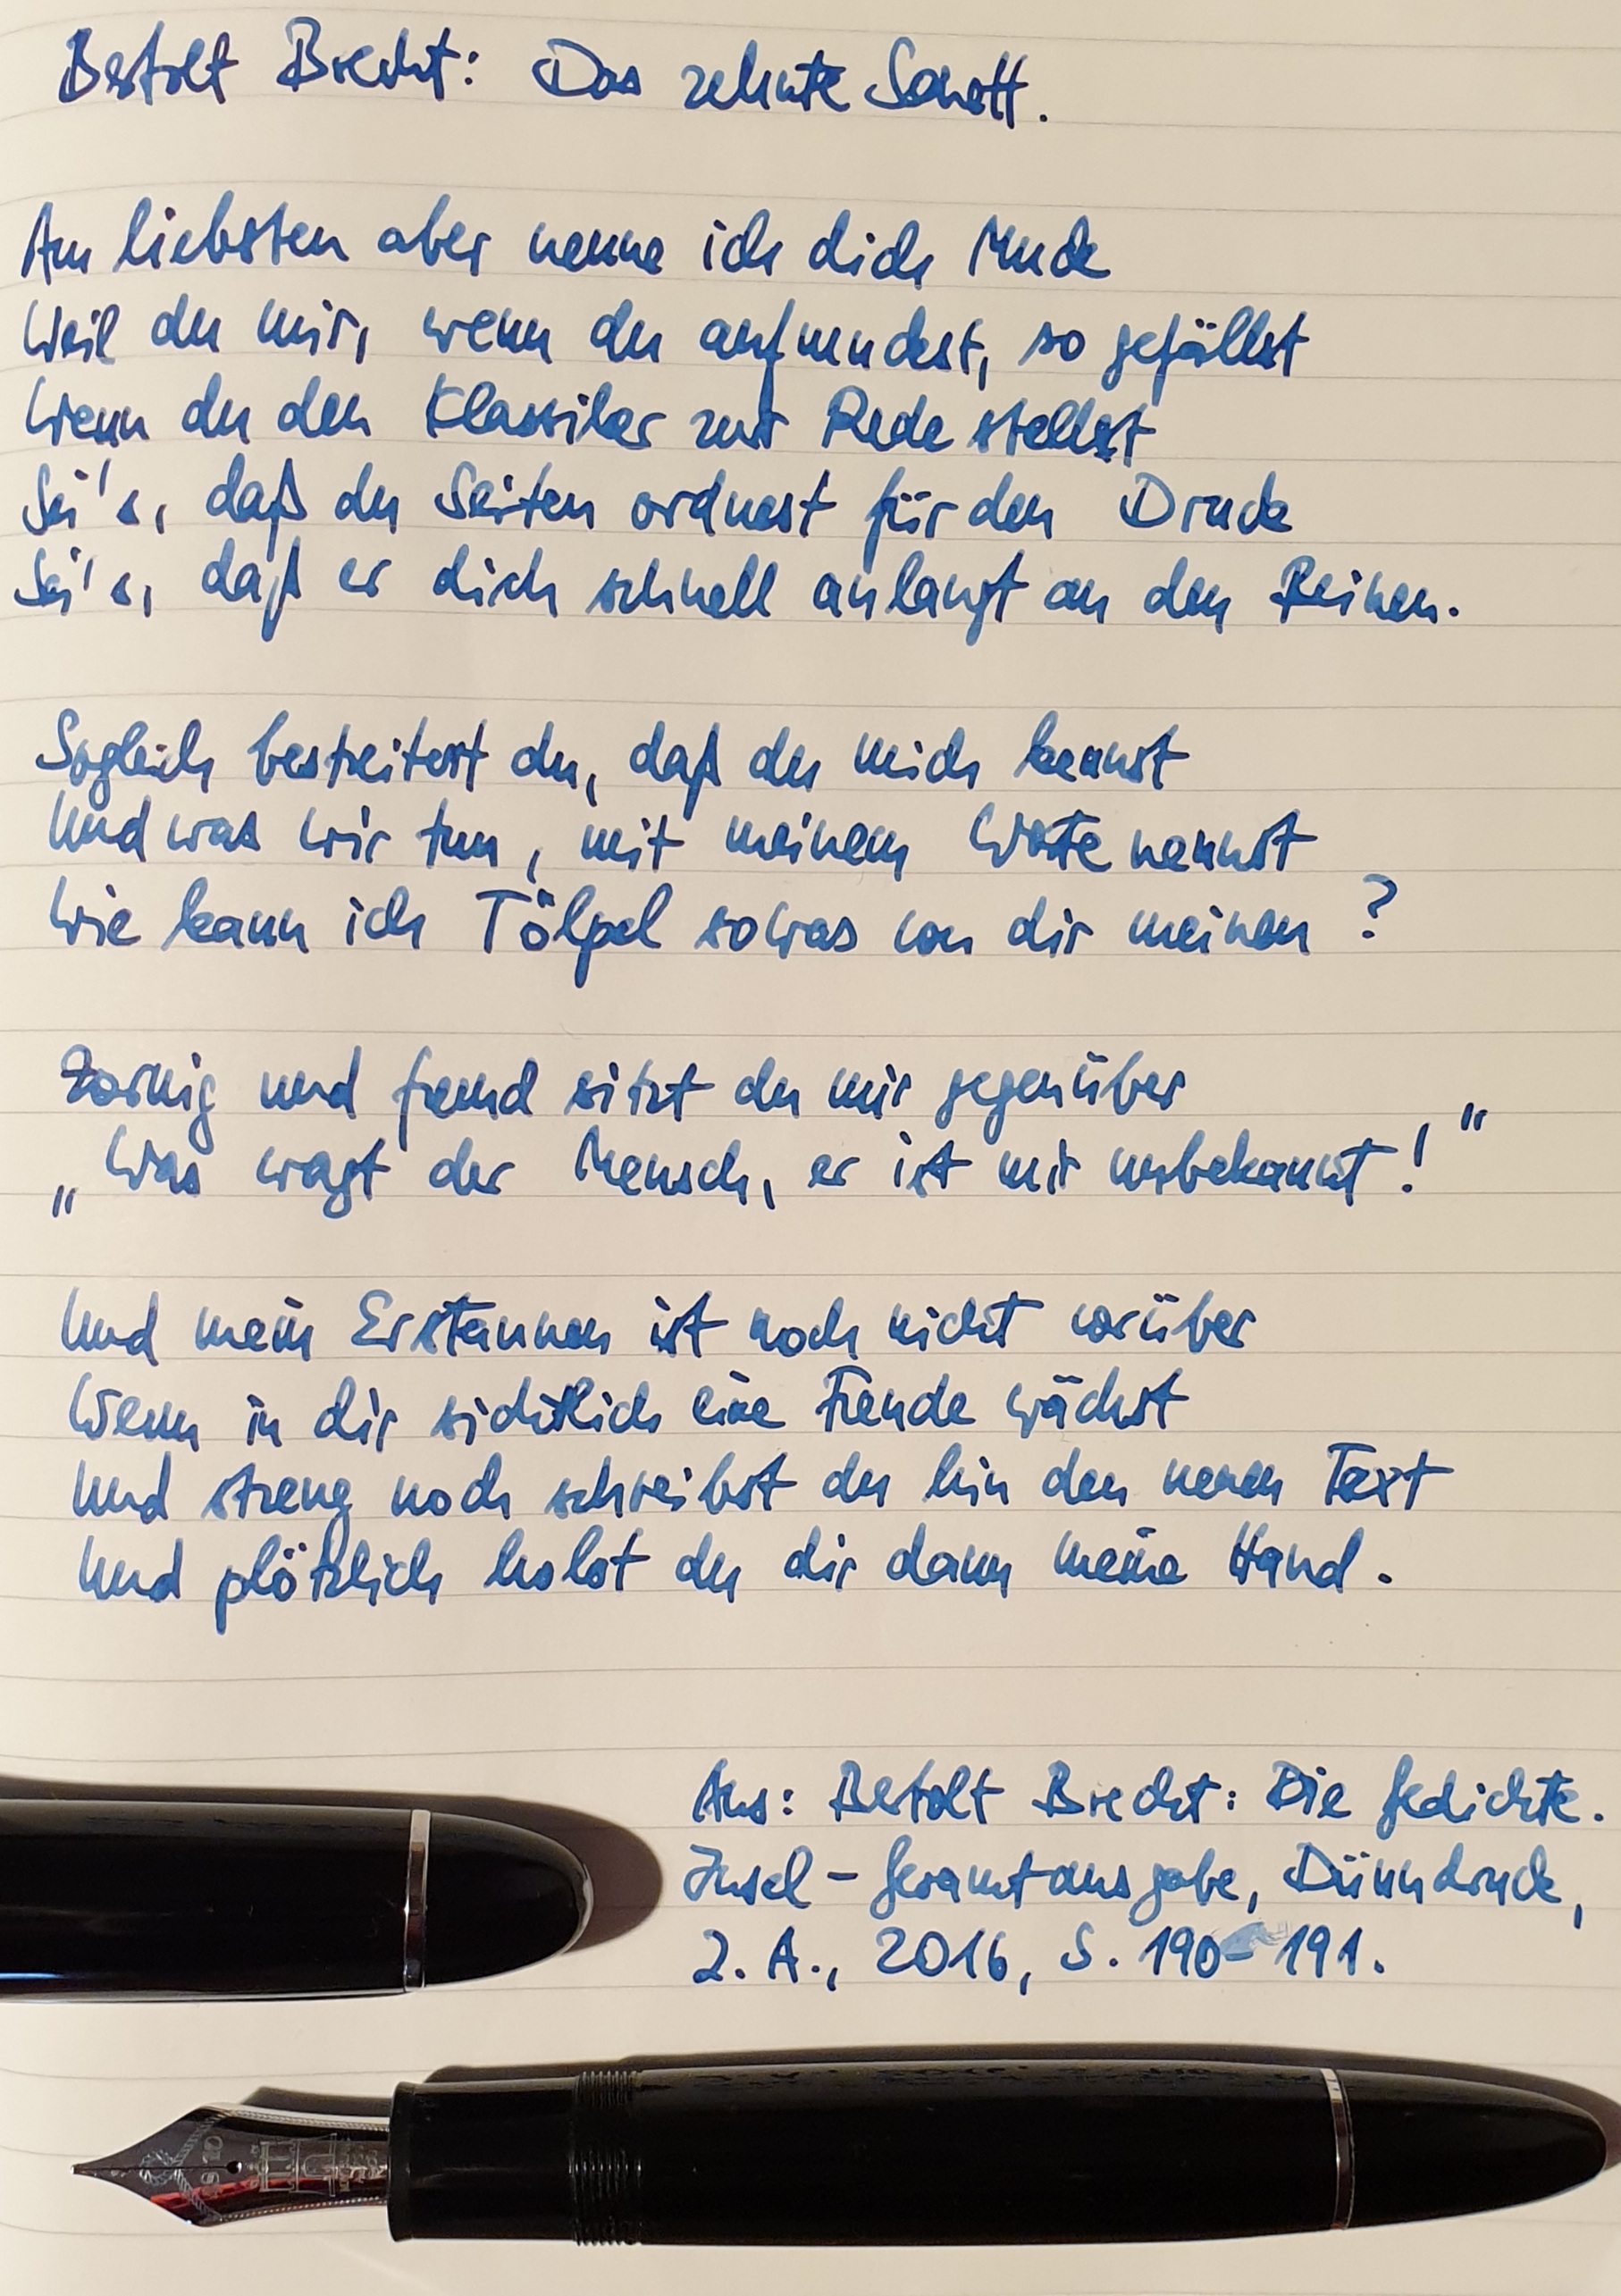 Bertolt Brecht: Das zehnte Sonett.
Am liebsten aber nenne ich dich Muck
Weil du mir, wenn du aufmuckst, so gefällst
Wenn du den Klassiker zur Rede stellst
Sei's, daß du Seiten ordnest für den Druck
Sei's, daß er dich schnell anlangt an den Beinen.
Sogleich bestreitest du, daß du mich kennst
Und was wir tun, mit meinem Worte nennst
Wie kann ich Tölpel sowas von dir meinen?
Zornig und fremd sitzt du mir gegenüber
„Was wagt der Mensch, er ist mir unbekannt!“
Und mein Erstaunen ist noch nicht vorüber
Wenn in dir sichtlich eine Freude wächst
Und streng noch schreibst du hin den neuen Text
Und plötzlich holst du dir dann meine Hand.
Aus: Bertolt Brecht: Die Gedichte.
Insel-Gesamtausgabe, Dünndruck,
2. A., 2016, S. 190-191.